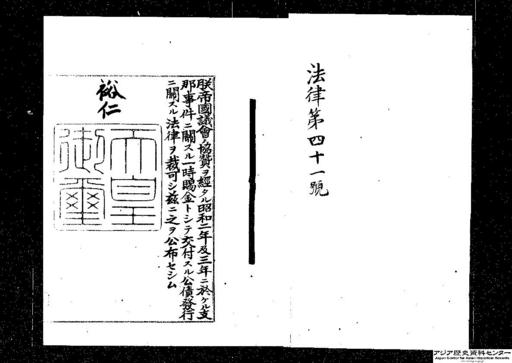 法律第四十一號
朕帝國議會ノ協贊ヲ經タル昭和二年及三年ニ於ケル支
那事件ニ關スル一時賜金トシテ交付スル公債發行
ニ關スル法律ヲ裁可シ茲ニ之ヲ公布セシム
裕仁
天皇
御璽
アジア歴史資料センター
Japan Center for Asian Historical Records